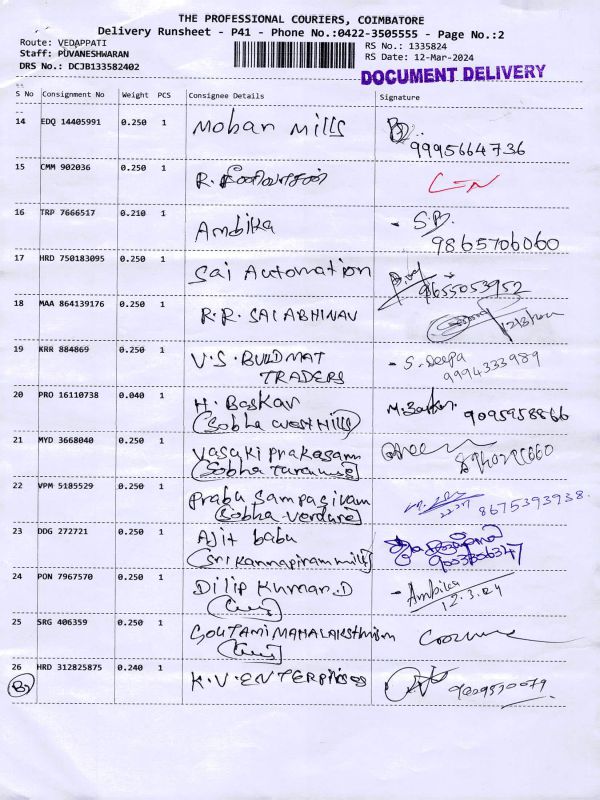 THE PROFESSIONAL COURIERS, COIMBATORE
Delivery Runsheet - P41 - Phone No.:0422-3505555 - Page No.:2
Route: VEDAPPATI
Staff: PUVANESHWARAN
DRS No.: DCJB133582402
RS No.: 1335824
RS Date: 12-Mar-2024
DOCUMENT DELIVERY
S No Consignment No Weight PCS Consignee Details Signature
14 EDQ 14405991 0.250 1 Mohan Mills 9995664736
15 CMM 902036 0.250 1 R.
16 TRP 7666517 0.210 1 Ambika - S.B.
9865706060
17 HRD 750183095 0.250 1 Sai Automation 9655053952
18 MAA 864139176 0.250 1 R.R. SAI ABHINAV
19 KRR 884869 0.250 1 V.S. BUILDMAT - S. Deepa
TRADERS 9994333989
20 PRO 16110738 0.040 1 H. Baskar M. Baskar. 9095958866
(Sobha West Hills)
21 MYD 3668040 0.250 1 Vasuki Prakasam
(Sobha
22 VPM 5185529 0.250 1 Prabu Sampasivam 8675393938.
(Sobha Verdure)
23 DDG 272721 0.250 1 Ajit babu
(Sri Kannapiram mills) 9003806347
24 PON 7967570 0.250 1 Dilip Kumar.D - Ambika
12.3.24
25 SRG 406359 0.250 1 GOUTAMI
26 HRD 312825875 0.240 1 K.V. ENTERPRISES